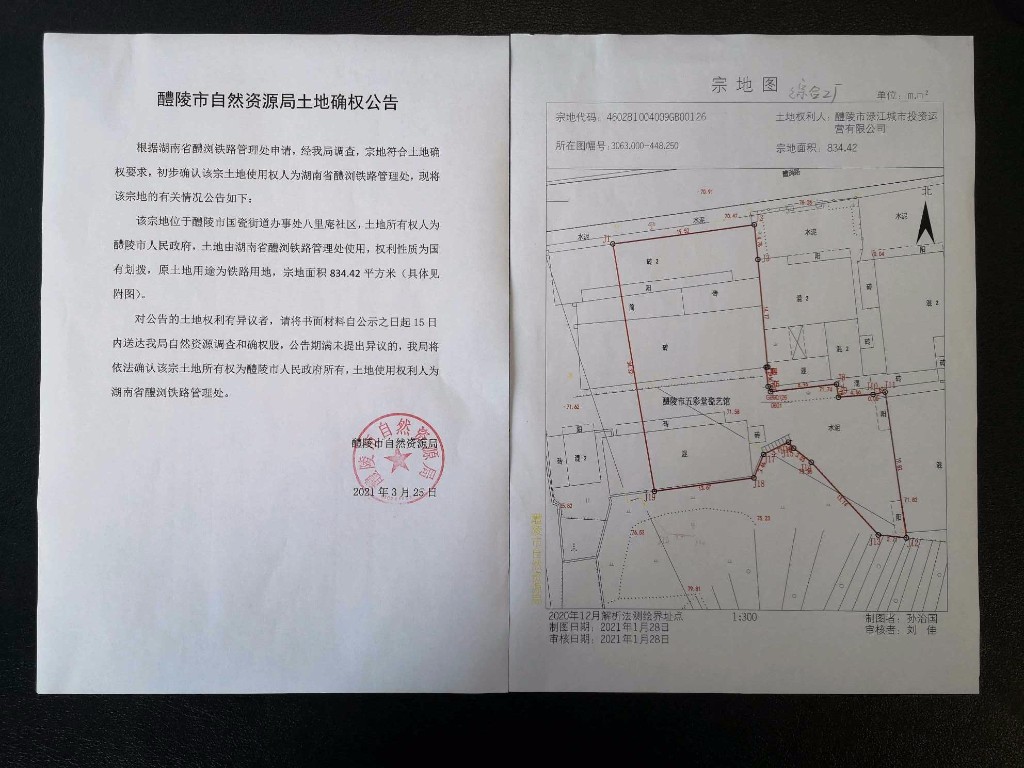 醴陵市自然资源局土地确权公告
根据湖南省醴浏铁路管理处申请，经我局调查，宗地符合土地确
权要求，初步确认该宗土地使用权人为湖南省醴浏铁路管理处，现将
该宗地的有关情况公告如下：
该宗地位于醴陵市国瓷街道办事处八里庵社区，土地所有权人为
醴陵市人民政府，土地由湖南省醴浏铁路管理处使用，权利性质为国
有划拨，原土地用途为铁路用地，宗地面积 834.42 平方米（具体见
附图）。
对公告的土地权利有异议者，请将书面材料自公示之日起 15 日
内送达我局自然资源调查和确权股，公告期满未提出异议的，我局将
依法确认该宗土地所有权为醴陵市人民政府所有，土地使用权利人为
湖南省醴浏铁路管理处。
醴陵市自然资源局
2021 年 3 月 25 日
醴陵市自然资源局
宗地图
综合工厂
单位：m.m²
宗地代码：460281004009GB00126
土地权利人：醴陵市渌江城市投资运
营有限公司
所在图幅号：3063.000-448.250
宗地面积：834.42
北
70.91
水泥
水泥
水泥
水泥
70.47
J1
J2
J3
砖 2
阳
砖
混 2
混 2
阳
71.62
醴陵市五彩堂瓷艺馆
71.58
砖
混
水泥
J19
J18
J17
J13
J12
71.62
79.81
2020年12月解析法测绘界址点
制图日期：2021年1月28日
审核日期：2021年1月28日
1:300
制图者：孙治国
审核者：刘 佳